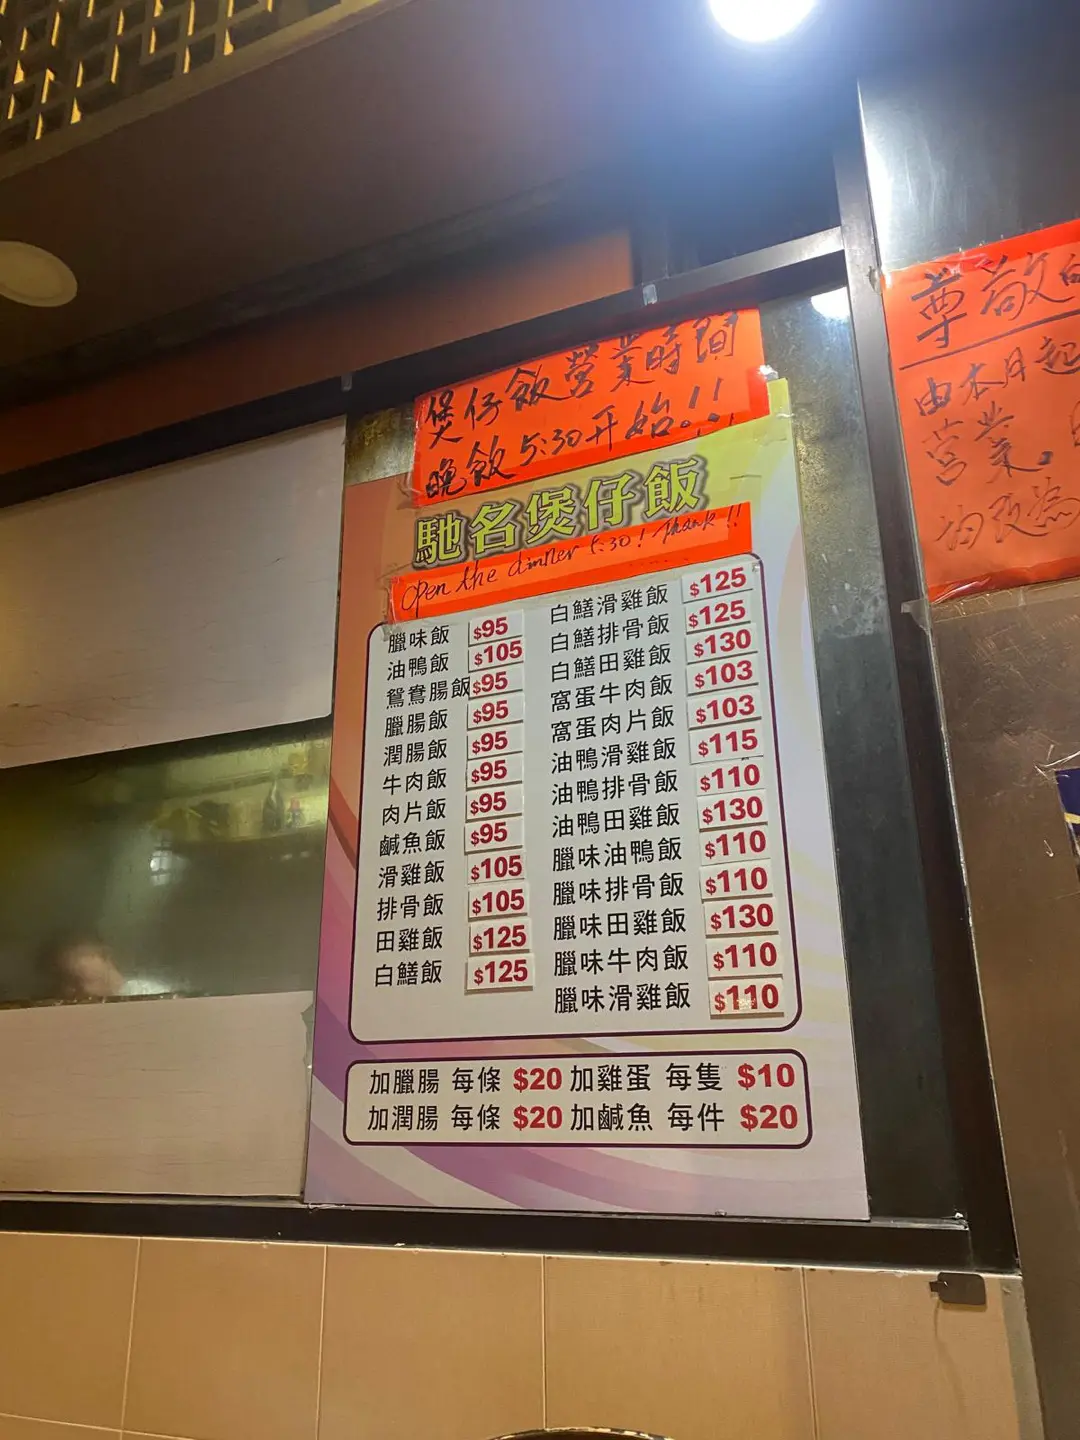 煲仔飯營業時間
晚飯5:30开始!!
馳名煲仔飯
open the dinner 5:30! Thank!!
臘味飯 $95
油鴨飯 $105
鴛鴦腸飯 $95
臘腸飯 $95
潤腸飯 $95
牛肉飯 $95
肉片飯 $95
鹹魚飯 $95
滑雞飯 $105
排骨飯 $105
田雞飯 $125
白鱔飯 $125
白鱔滑雞飯 $125
白鱔排骨飯 $125
白鱔田雞飯 $130
窩蛋牛肉飯 $103
窩蛋肉片飯 $103
油鴨滑雞飯 $115
油鴨排骨飯 $110
油鴨田雞飯 $130
臘味油鴨飯 $110
臘味排骨飯 $110
臘味田雞飯 $130
臘味牛肉飯 $110
臘味滑雞飯 $110
加臘腸 每條 $20 加雞蛋 每隻 $10
加潤腸 每條 $20 加鹹魚 每件 $20
尊敬的
由本月起
营業。
改為